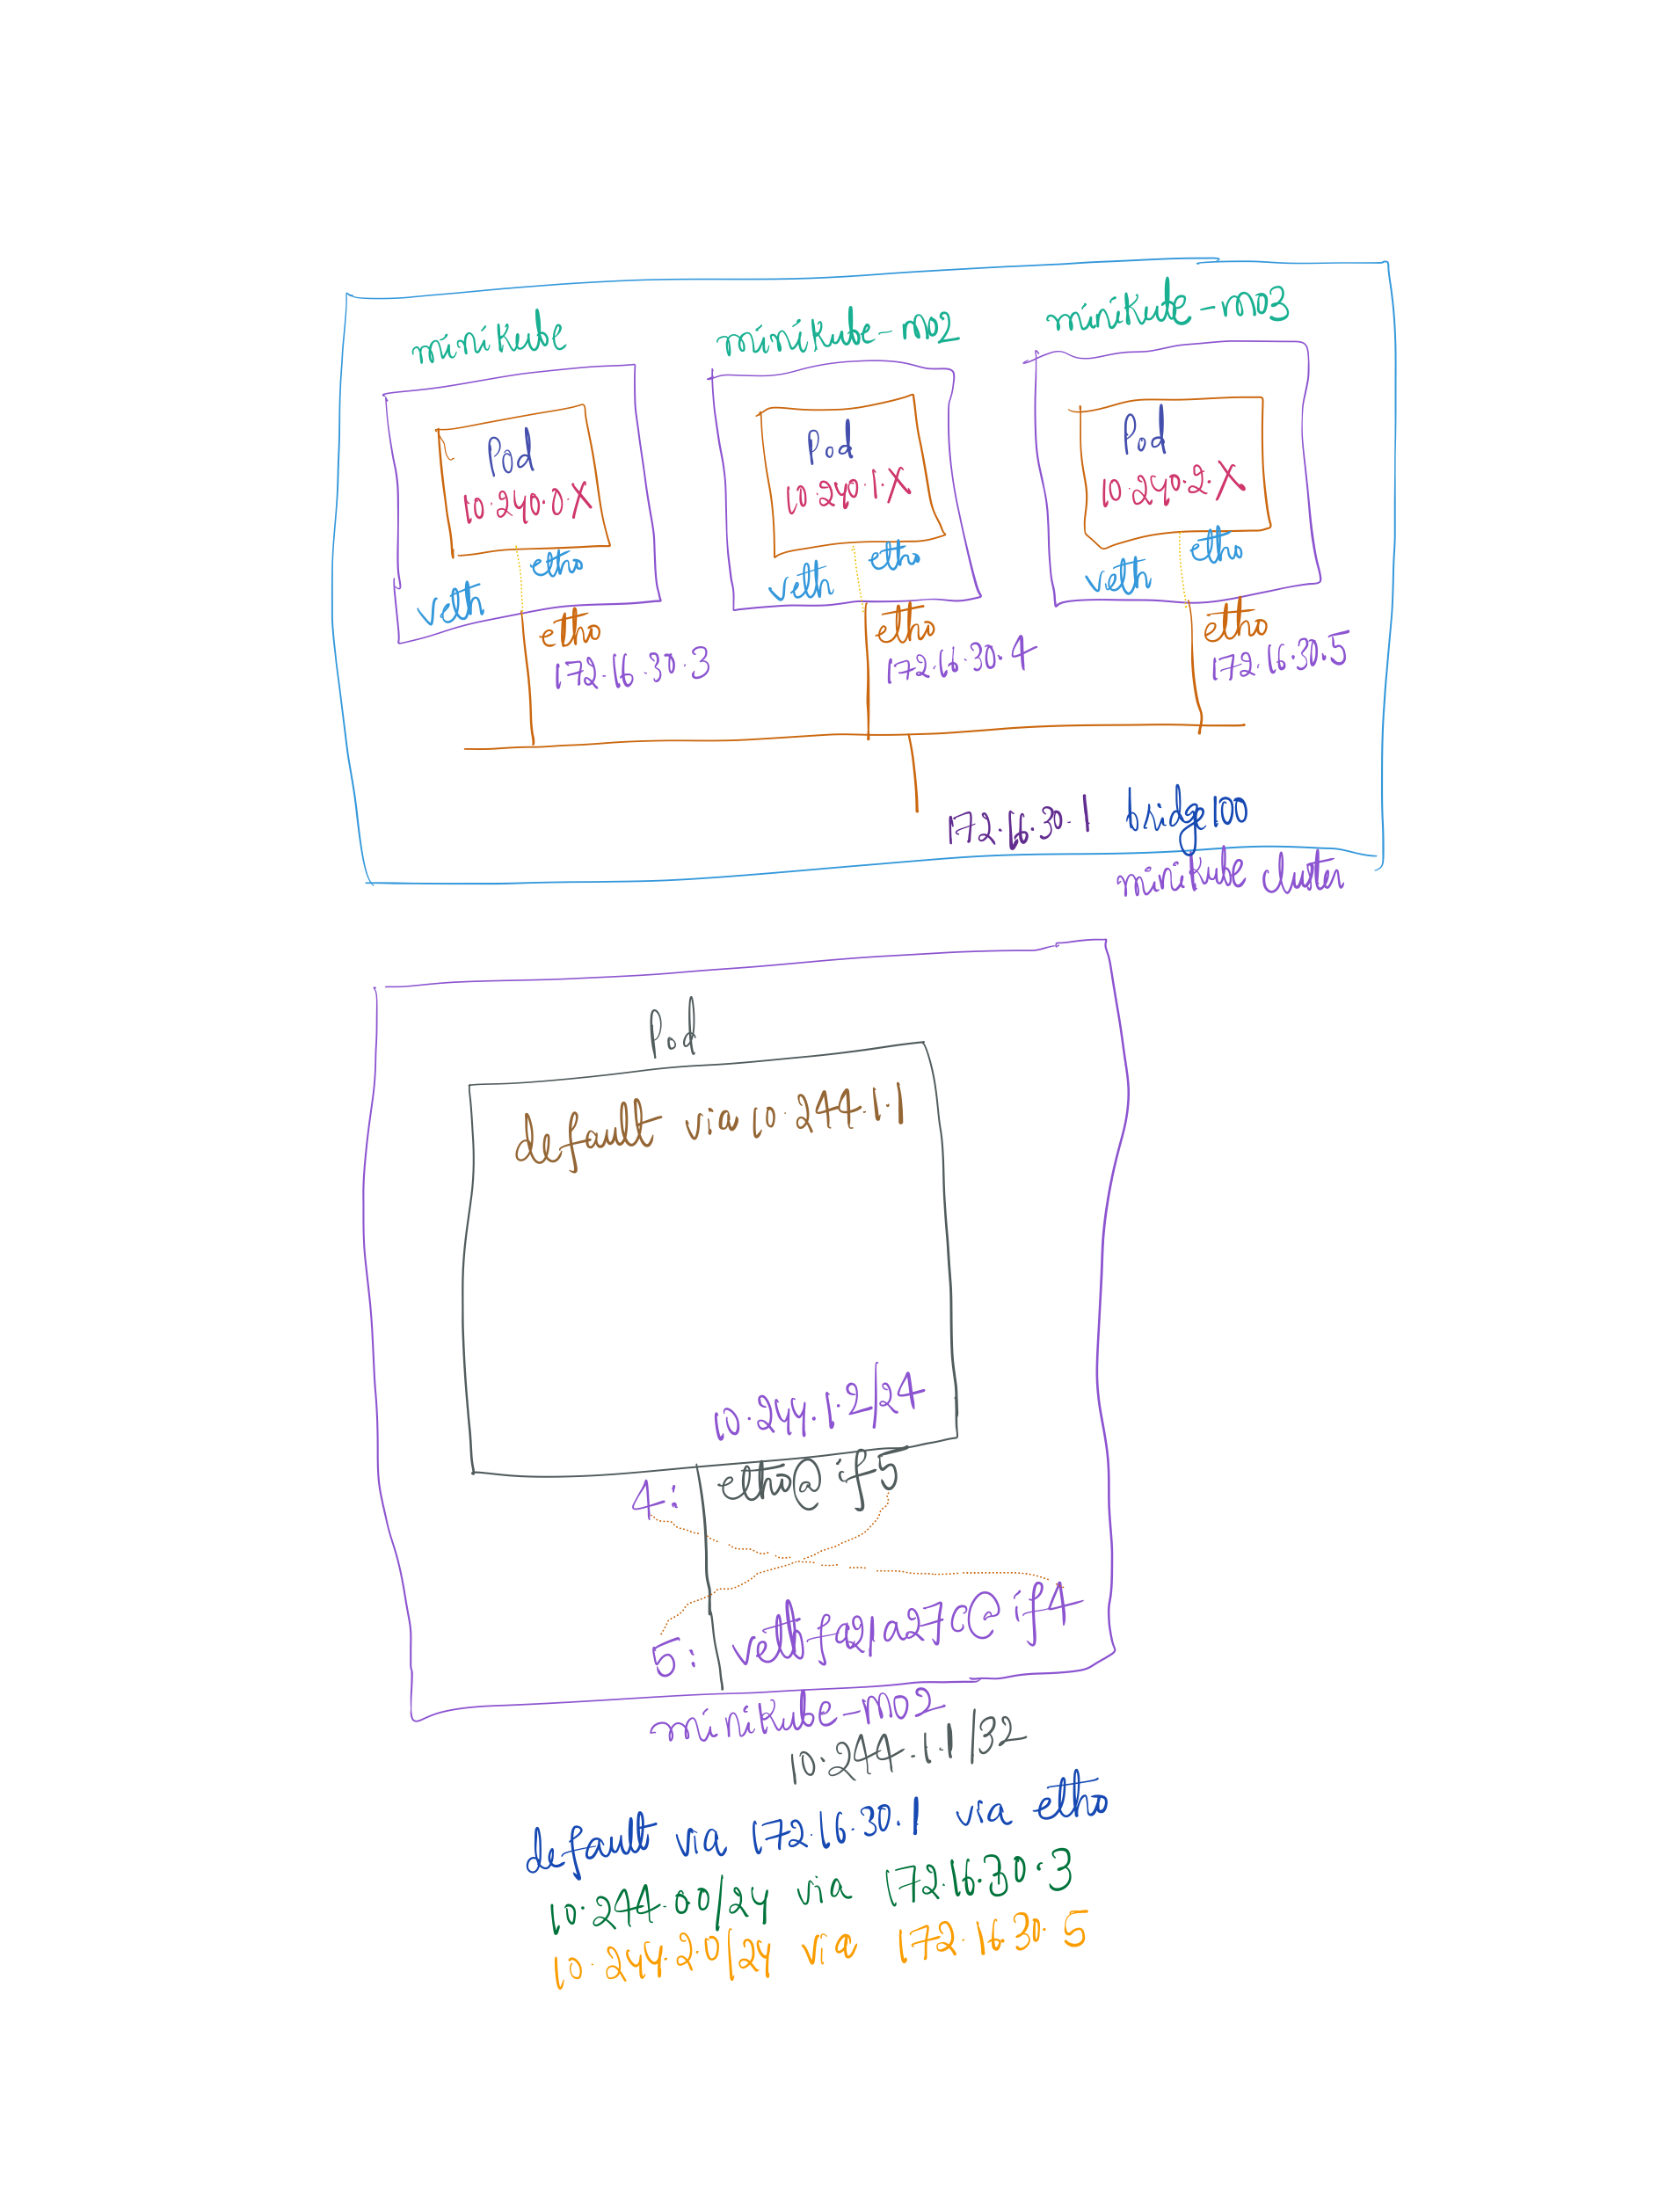 minikube
minikube-m02
minikube-m03
Pod
10.240.0.X
eth0
veth
eth0
172.16.30.3
Pod
10.240.1.X
eth0
veth
eth0
172.16.30.4
Pod
10.240.2.X
eth0
veth
eth0
172.16.30.5
172.16.30.1 bridge100
minikube cluster
Pod
default via 10.244.1.1
10.244.1.2/24
4: eth0@if5
5: vethfa21a27c@if4
minikube-m02
10.244.1.1/32
default via 172.16.30.1 via eth0
10.244.0.0/24 via 172.16.30.3
10.244.2.0/24 via 172.16.30.5